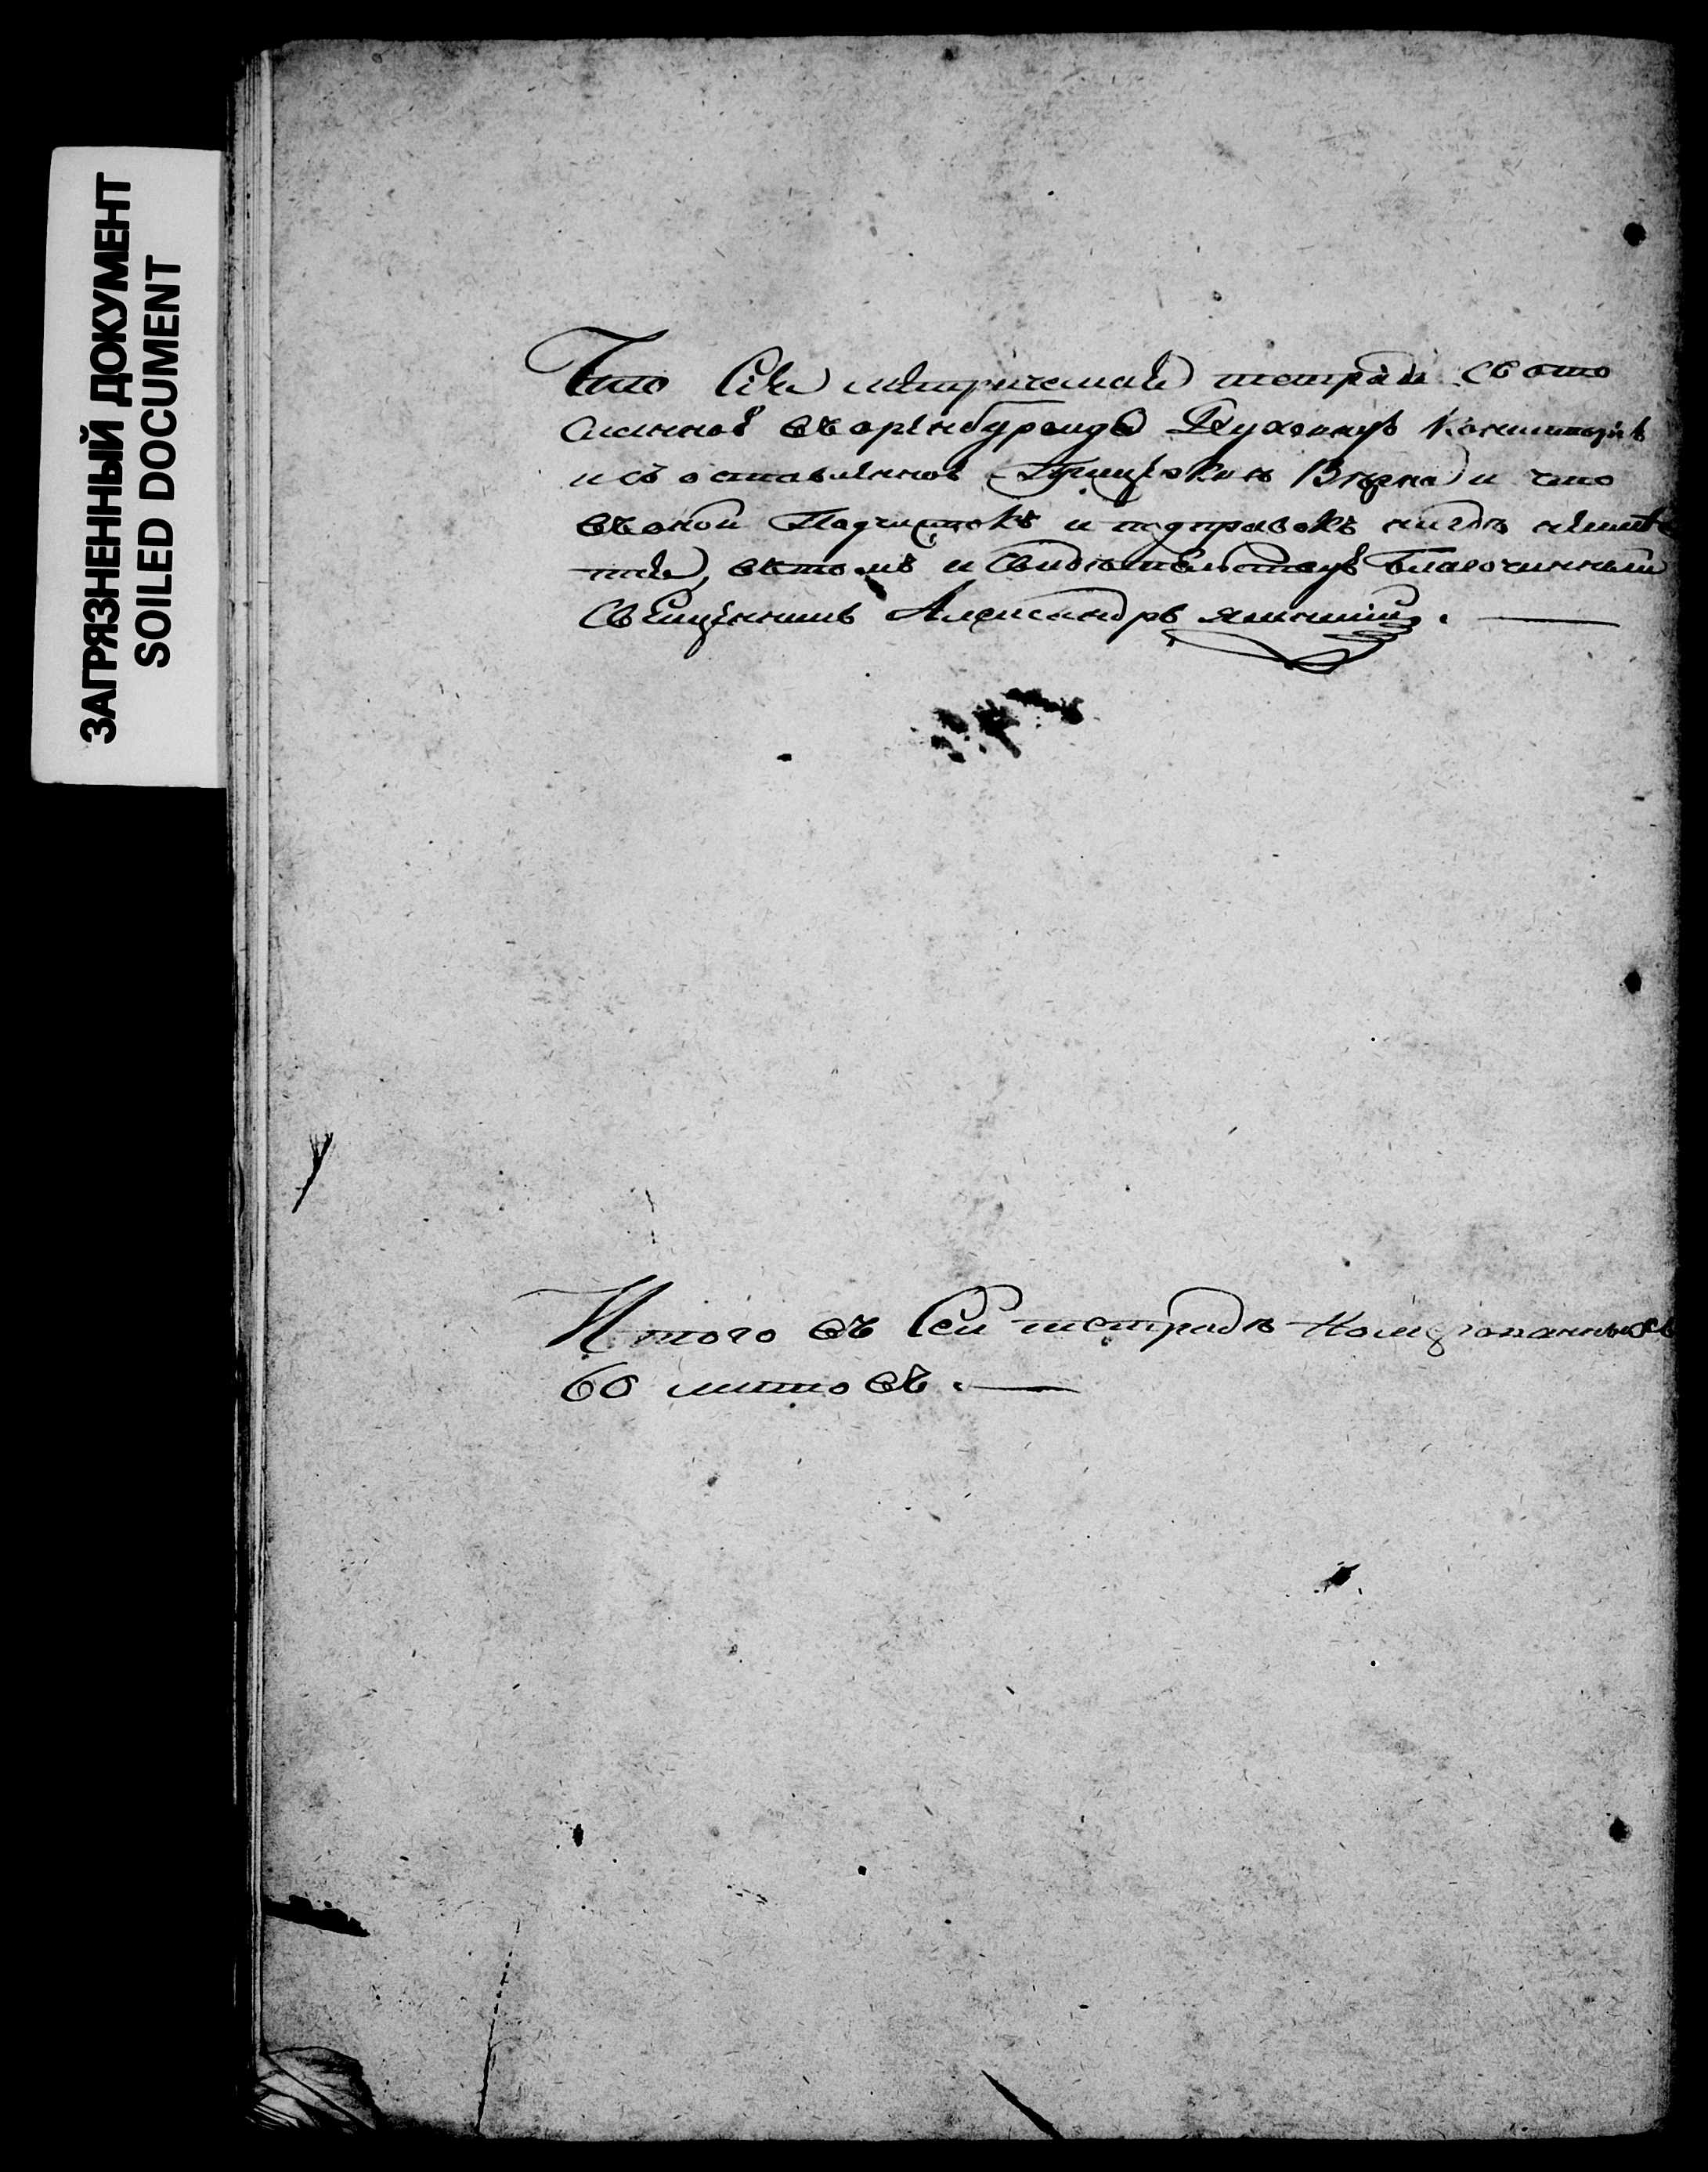 ЗАГРЯЗНЕННЫЙ ДОКУМЕНТ
SOILED DOCUMENT
Что Сія метрическая тетрадь съ ото
сланной въ оренбургскую Духовную Консисторію
и съ оставленной При церкви Верна и что
въ оной Подчистокъ и подправокъ нигде неимѣ
тся, въ томъ и Свидетельствую благочинный
Священникъ Александръ
Итого въ Сей тетрадѣ
60 листовъ.